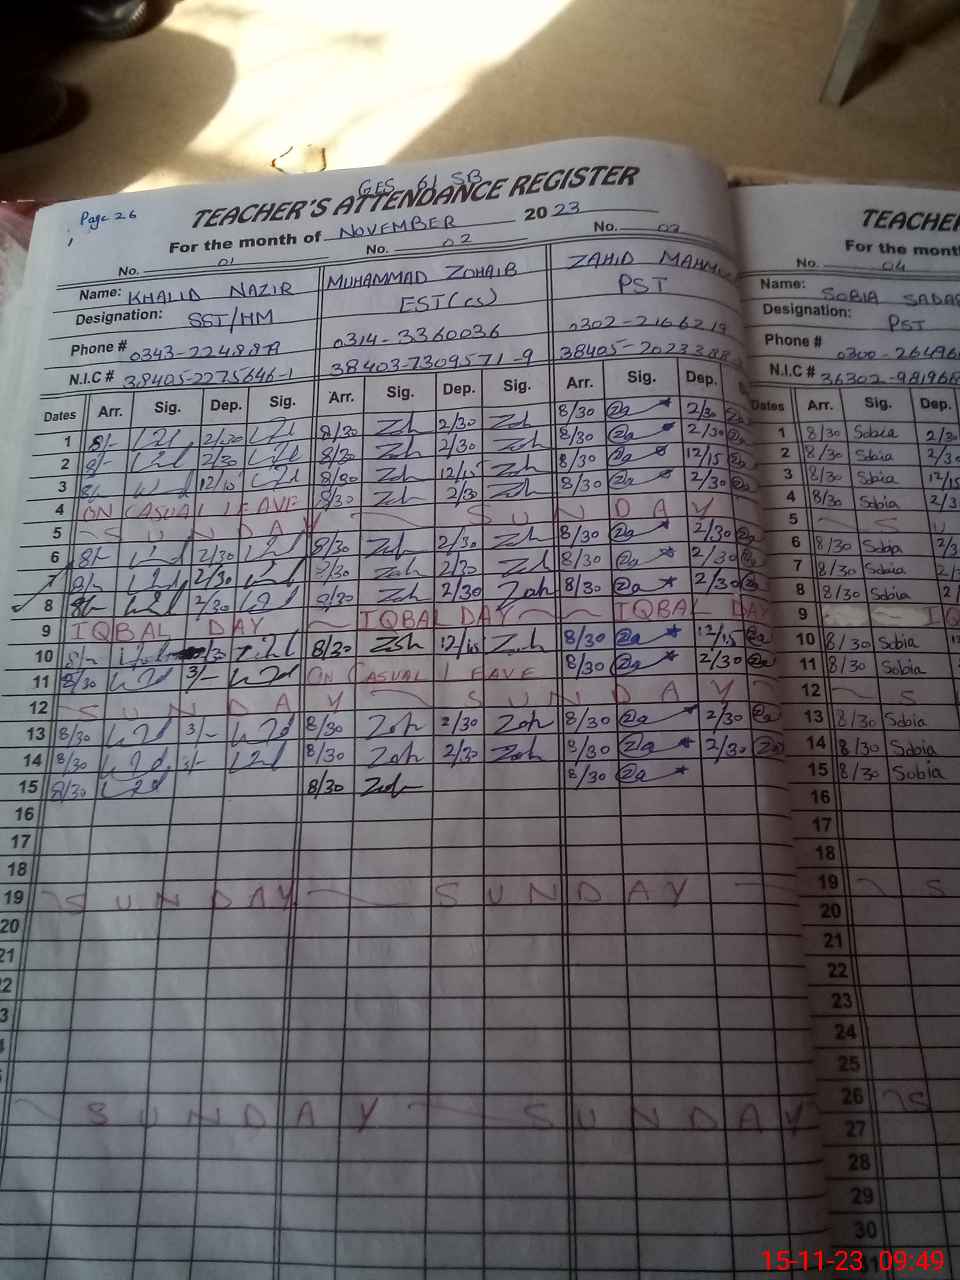 Page 26
GES 61 SB
TEACHER'S ATTENDANCE REGISTER
For the month of NOVEMBER 2023
No. 01 No. 02 No. 03
Name: KHALID NAZIR MUHAMMAD ZOHAIB ZAHID
Designation: SST/HM EST(CS) PST
Phone # 0314-3360036 0302-2166219
N.I.C # 38405-2275646-1 38403-7309571-9 38405-
Dates Arr. Sig. Dep. Sig. Arr. Sig. Dep. Sig. Arr. Sig. Dep.
1 8/- 2/30 8/30 Zoh 2/30 Zoh 8/30 2/30
2 8/- 2/30 8/30 Zoh 2/30 Zoh 8/30 2/30
3 8/- 12/15 8/30 Zoh 12/15 Zoh 8/30 12/15
4 ON CASUAL LEAVE 8/30 Zoh 2/30 Zoh 8/30 2/30
5 SUNDAY SUNDAY
6 8/- 2/30 8/30 Zoh 2/30 Zoh 8/30 2/30
7 8/- 2/30 8/30 Zoh 2/30 Zoh 8/30 2/30
8 8/- 2/30 8/30 Zoh 2/30 Zoh 8/30 2/30
9 IQBAL DAY IQBAL DAY IQBAL DAY
10 8/- 8/30 Zoh 12/15 Zoh 8/30 12/15
11 8/30 3/- ON CASUAL LEAVE 8/30 2/30
12 SUNDAY SUNDAY
13 8/30 3/- 8/30 Zoh 2/30 Zoh 8/30 2/30
14 8/30 3/- 8/30 Zoh 2/30 Zoh 8/30 2/30
15 8/30 8/30 Zoh 8/30
16
17
18
19 SUNDAY SUNDAY
20
21
SUNDAY SUNDAY
TEACHE
For the mont
No. 04
Name: SOBIA
Designation: PST
Phone #
N.I.C #
Dates Arr. Sig. Dep.
1 8/30 Sobia
2 8/30 Sobia
3 8/30 Sobia
4 8/30 Sobia
5 S U
6 8/30 Sobia
7 8/30 Sobia
8 8/30 Sobia
9
10 8/30 Sobia
11 8/30 Sobia
12 S
13 8/30 Sobia
14 8/30 Sobia
15 8/30 Sobia
16
17
18
19 S
20
21
22
23
24
25
26 S
27
28
29
30
15-11-23 09:49